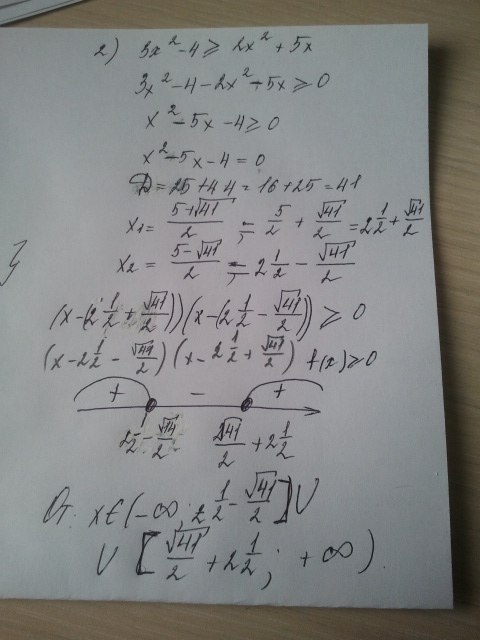 2) 3x² - 4 ≥ 2x² + 5x
3x² - 4 - 2x² - 5x ≥ 0
x² - 5x - 4 ≥ 0
x² - 5x - 4 = 0
D = 25 + 4·4 = 16 + 25 = 41
x₁ = (5+√41)/2 = 5/2 + √41/2 = 2 1/2 + √41/2
x₂ = (5-√41)/2 = 2 1/2 - √41/2
(x-(2 1/2 + √41/2))(x-(2 1/2 - √41/2)) ≥ 0
(x - 2 1/2 - √41/2)(x - 2 1/2 + √41/2) f(x) ≥ 0
+ - +
2 1/2 - √41/2 √41/2 + 2 1/2
От: x ∈ (-∞; 2 1/2 - √41/2] U
U [√41/2 + 2 1/2; +∞)